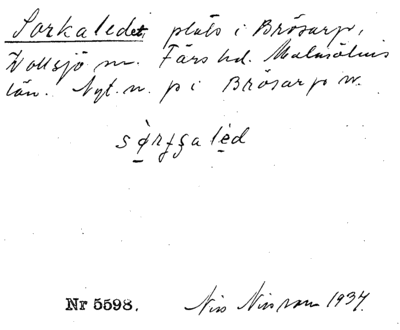 Sorkaledet, plats i Brösarp,
Vollsjö sn. Färs hd. Malmöhus
län. Nytt n. på i Brösarp nr.
sɔ̀rkgaled
Nr 5598. Nils Nilsson 1934.